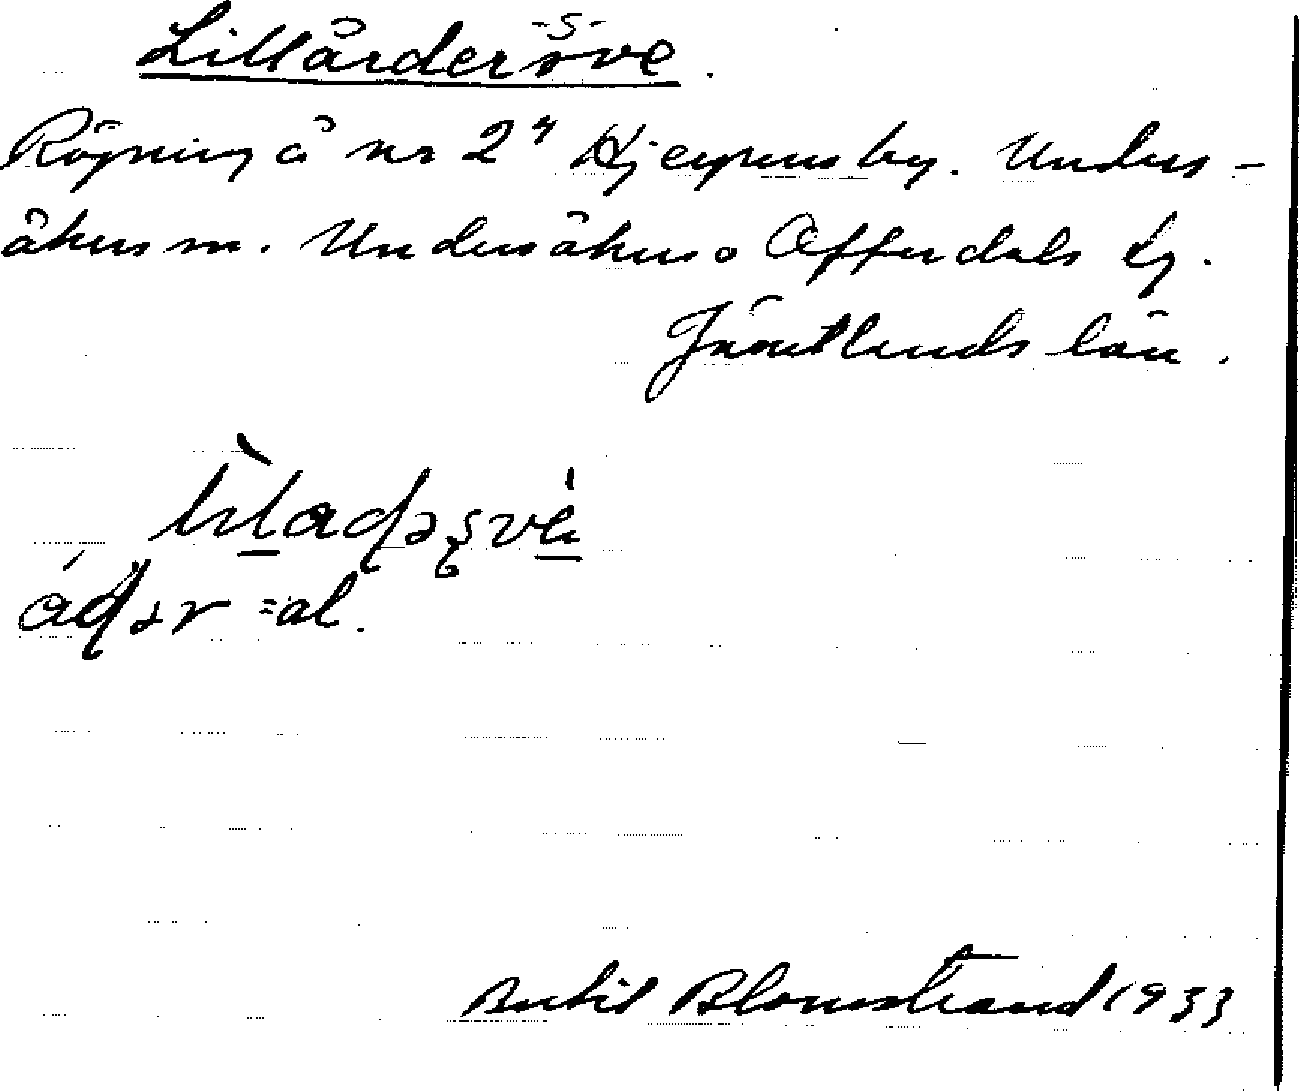 -s-
Lillårderöve.
Röjning å nr 2 Hjerpens by. Unders-
åkers sn. Undersåkers o Offerdals tg.
Jämtlands län.
= al.
Bertil Blomstrand 1933